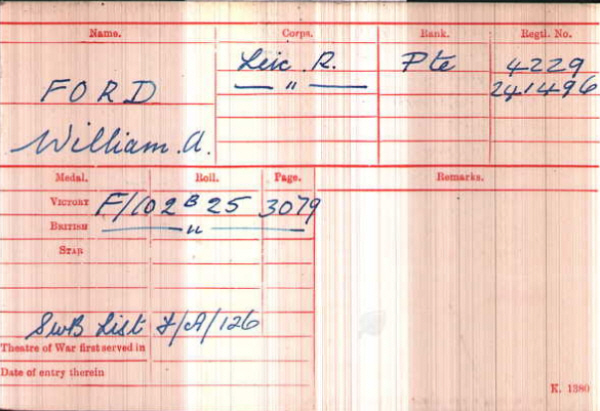 Name. Corps. Rank. Regtl. No.
Leic. R. Pte 4229
FORD — " — 241496
William. A.
Medal. Roll. Page. Remarks.
VICTORY F/102 B 25 3079
BRITISH — " —
STAR
SWB List F/A/126
Theatre of War first served in
Date of entry therein
K. 1380